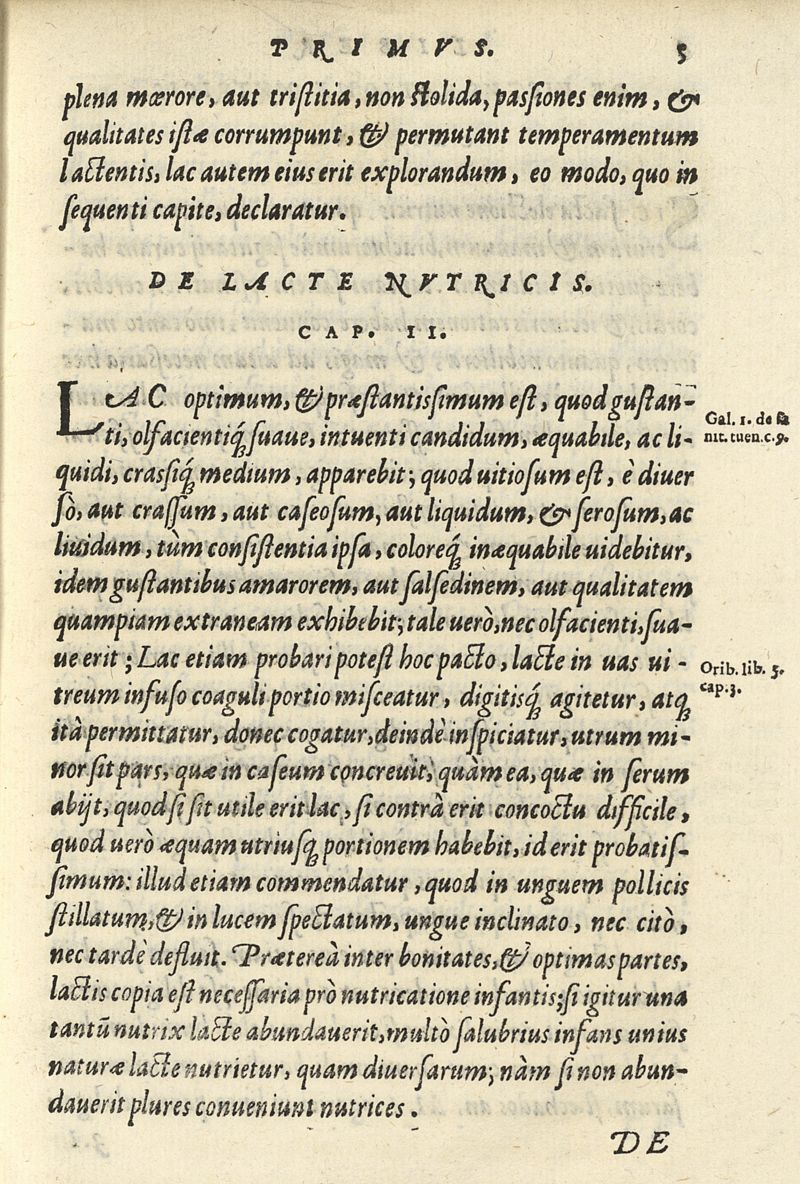 PRIMVS. 5
plena mœrore, aut tristitia, non stolida, passiones enim, &
qualitates istæ corrumpunt, & permutant temperamentum
lactentis, lac autem eius erit explorandum, eo modo, quo in
sequenti capite, declaratur.
DE LACTE NVTRICIS.
CAP. II.
LAC optimum, & præstantissimum est, quod gustan-
ti, olfacientiq́; suaue, intuenti candidum, æquabile, ac li-
quidi, crassiq́; medium, apparebit; quod uitiosum est, è diuer
sò, aut crassum, aut caseosum, aut liquidum, & serosum, ac
liuidum, tùm consistentia ipsa, coloreq́; inæquabile uidebitur,
idem gustantibus amarorem, aut salsedinem, aut qualitatem
quampiam extraneam exhibebit; tale uerò, nec olfacienti, sua-
ue erit; Lac etiam probari potest hoc pacto, lacte in uas ui-
treum infuso coaguli portio misceatur, digitisq́; agitetur, atq́;
ità permittatur, donec cogatur, deindè inspiciatur, utrum mi-
nor sit pars, quæ in caseum concreuit, quàm ea, quæ in serum
abijt, quod si sit utile erit lac, si contrà erit concoctu difficile,
quod uerò æquam utriusq́; portionem habebit, id erit probatis-
simum: illud etiam commendatur, quod in unguem pollicis
stillatum, & in lucem spectatum, ungue inclinato, nec citò,
nec tardè defluit. Prætereà inter bonitates, & optimas partes,
lactis copia est necessaria prò nutricatione infantis; si igitur una
tantũ nutrix lacte abundauerit, multò salubrius infans unius
naturæ lacte nutrietur, quam diuersarum; nàm si non abun-
dauerit plures conueniunt nutrices.
DE
Gal. 1. de sa
nit. tuen. c. 9.
Orib. lib. 5.
cap. 3.